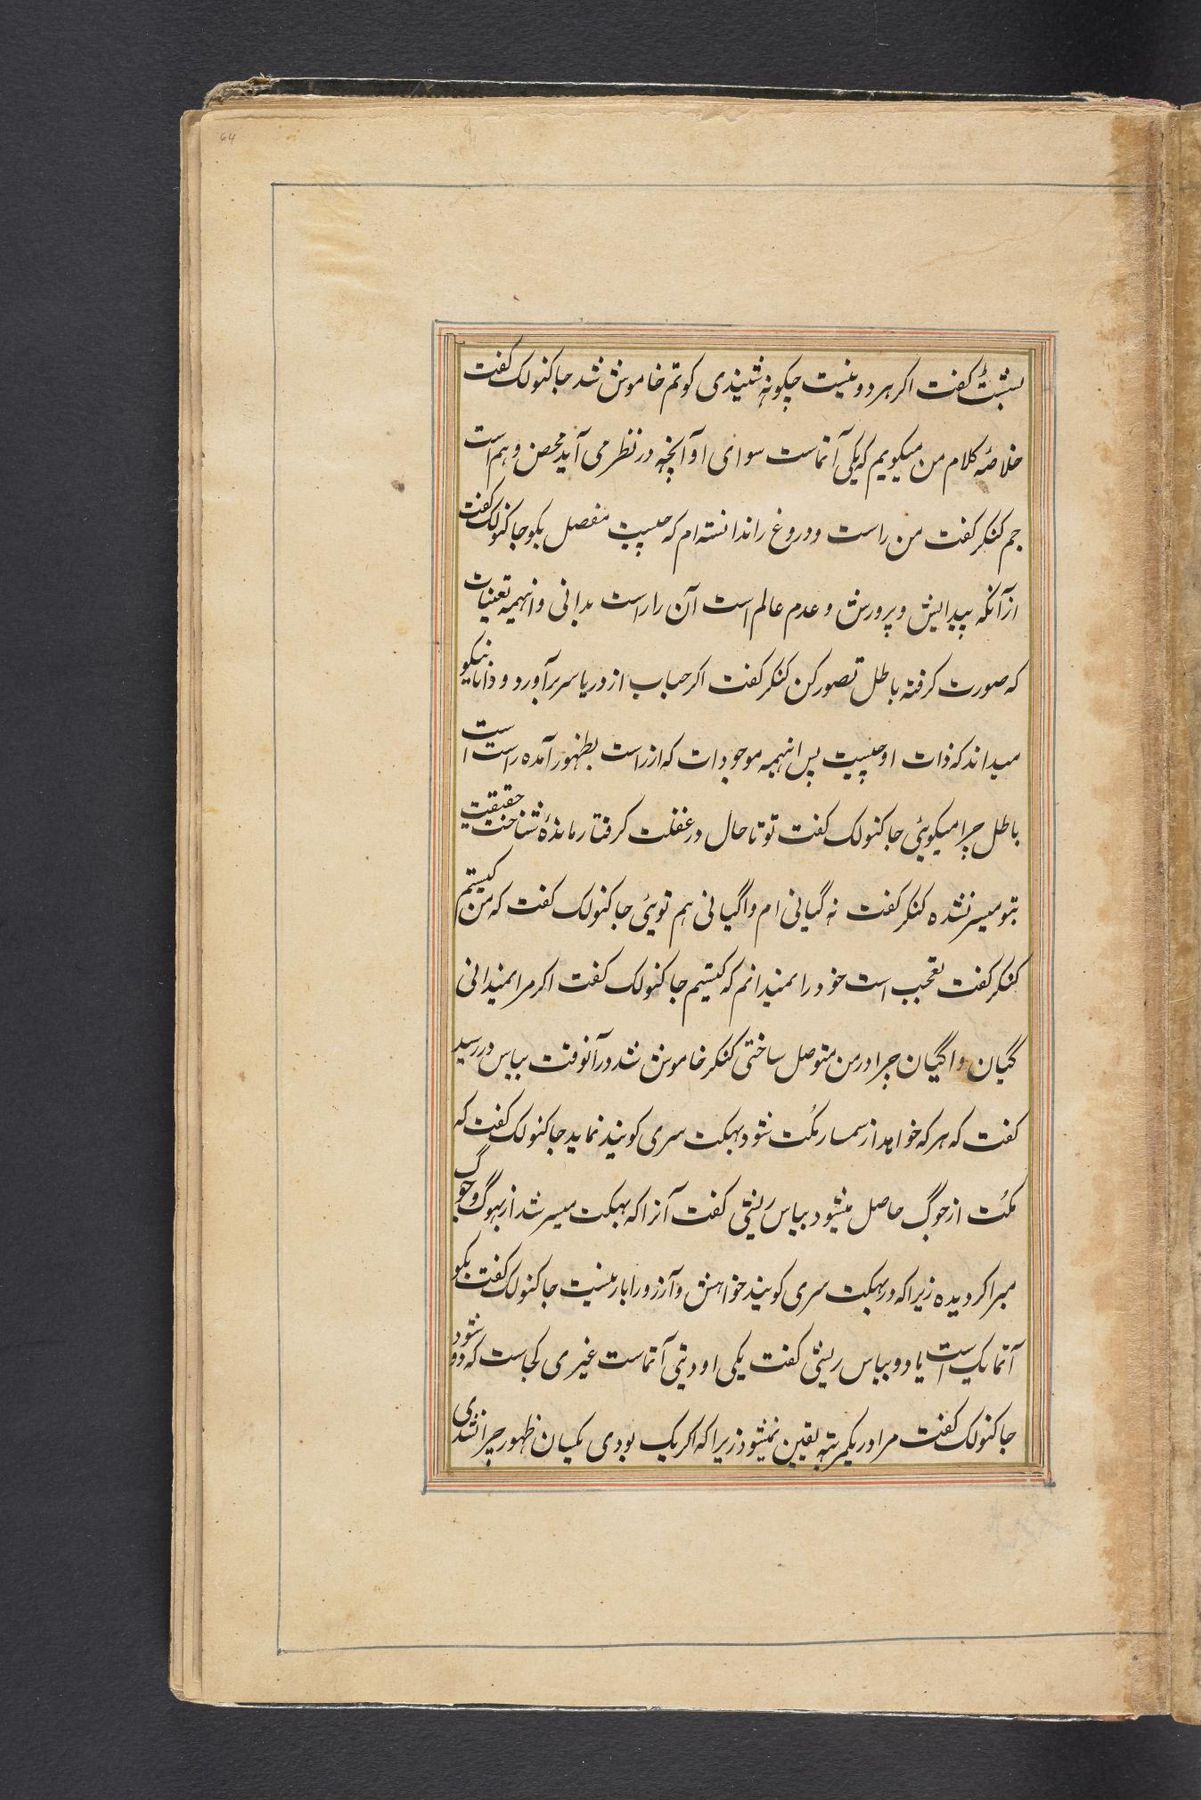 64
بششت کفت اکر هر دو نیست چکونه شنیدی کوتم خاموش شد جاکنولک کفت
خلاصهٔ کلام من میکویم که یکی آتماست سوای او آنچه در نظر می آید محض وهم است
جم کنکر کفت من راست و دروغ را ندانسته ام که چیست مفصل بکو جاکنولک کفت
از آنکه پیدایش و پرورش و عدم عالم است آن را راست بدانی و اینهمه تعینات
که صورت کرفته باطل تصور کن کنکر کفت اکر حباب از دریا سر برآورد و دانا نیکو
میداند که ذات او چیست پس اینهمه موجودات که از راست بظهور آمده راست است
باطل چرا میکویئی جاکنولک کفت تو تا حال در غفلت کرفتار ماندهٔ شناخت حقیقیت
بتو میسر نشده کنکر کفت نه گیانی ام و اگیانی هم تویئی جاکنولک کفت که من کیستم
کنکر کفت تعجب است خود را نمیدانم که کیستیم جاکنولک کفت اکر مرا نمیدانی
گیان و اگیان چرا در من متوصل ساختی کنکر خاموش شد در آنوقت بیاس در رسید
کفت که هر که خواهد از سمسار مکت شود بهکت سری کوبیند نماید جاکنولک کفت که
مکت از جوگ حاصل میشود بیاس ریشی کفت آنرا که بهکت میسر شد از بهوگ و جوگ
مبرا کردیده زیرا که در بهکت سری کوبیند خواهش و آرزو را بار نیست جاکنولک کفت بکو
آتما یک است یا دو بیاس ریشی کفت یکی او دیتی آتماست غیری کجاست که دو شود
جاکنولک کفت مرا در یکمرتبه یقین نمیشود زیرا که اکر یک بودی یکسان ظهور چرا نشدی